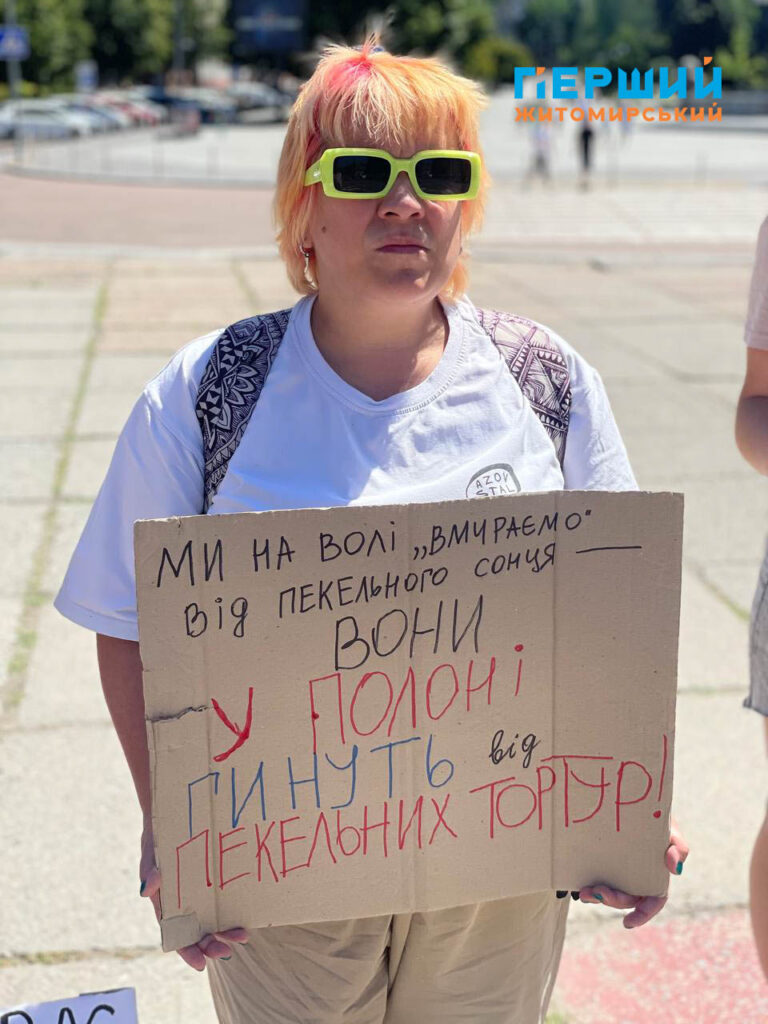 ПЕРШИЙ
ЖИТОМИРСЬКИЙ
AZOV
STAL
МИ НА ВОЛІ „ВМИРАЄМО"
ВІД ПЕКЕЛЬНОГО СОНЦЯ —
ВОНИ
У ПОЛОНІ
ГИНУТЬ від
ПЕКЕЛЬНИХ ТОРТУР!